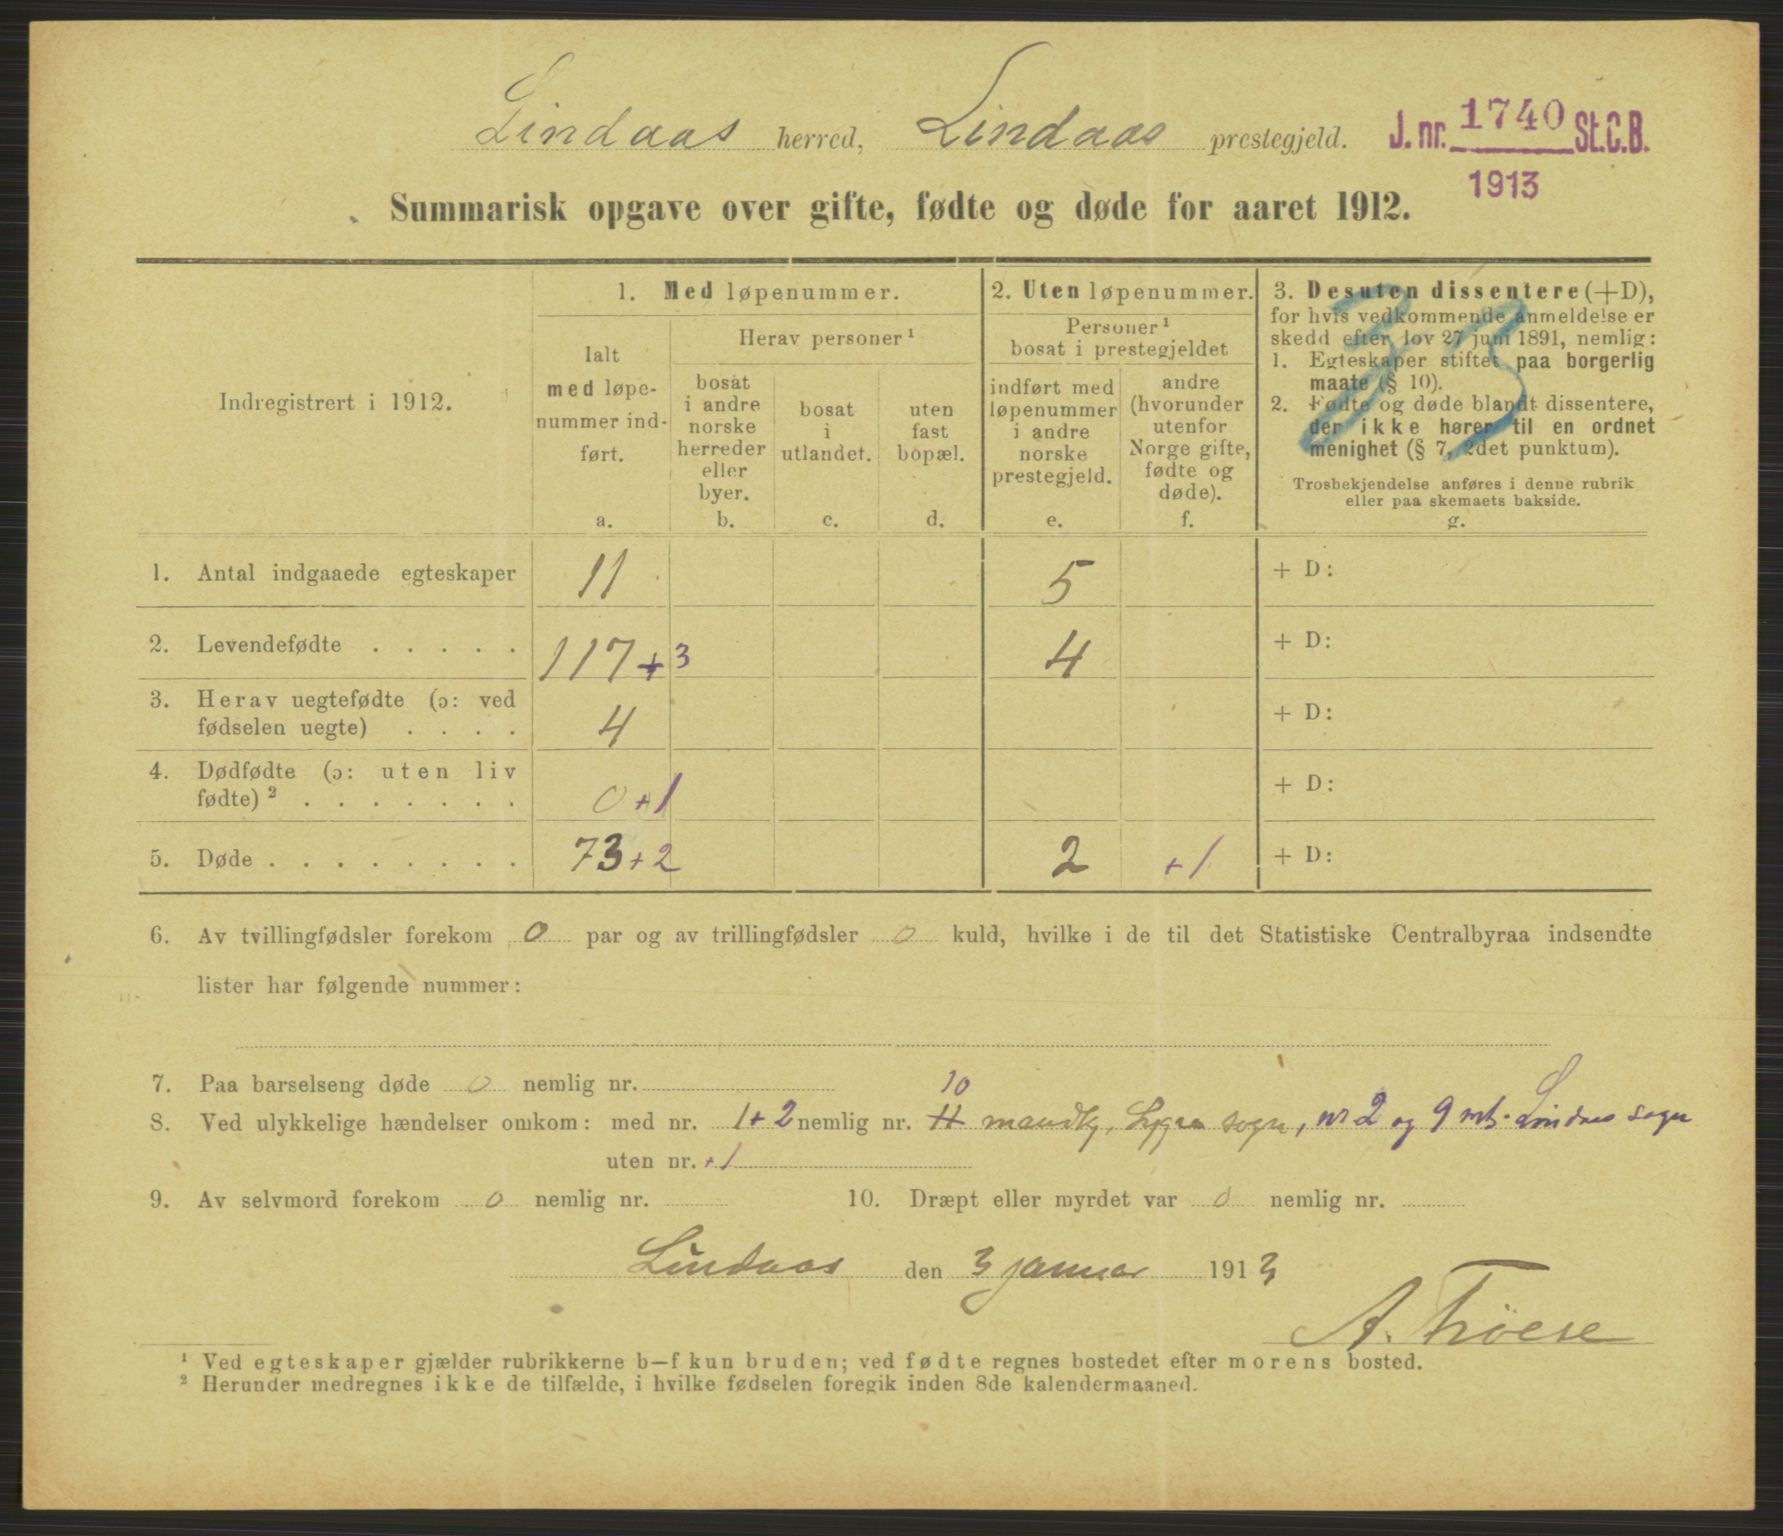 Lindaas herred, Lindaas prestegjeld.
J. nr. 1740 St.C.B.
1913
Summarisk opgave over gifte, fødte og døde for aaret 1912.
33
Indregistrert i 1912.
1. Med løpenummer.
Ialt
med løpe-
nummer ind-
ført.
a.
Herav personer ¹
bosat
i andre
norske
herreder
eller
byer.
b.
bosat
i
utlandet.
c.
uten
fast
bopæl.
d.
2. Uten løpenummer.
Personer ¹
bosat i prestegjeldet
indført med
løpenummer
i andre
norske
prestegjeld.
e.
andre
(hvorunder
utenfor
Norge gifte,
fødte og
døde).
f.
3. Desuten dissentere (+D),
for hvis vedkommende anmeldelse er
skedd efter lov 27 juni 1891, nemlig:
1. Egteskaper stiftet paa borgerlig
maate (§ 10).
2. Fødte og døde blandt dissentere,
der ikke hører til en ordnet
menighet (§ 7, 2det punktum).
Trosbekjendelse anføres i denne rubrik
eller paa skemaets bakside.
g.
1. Antal indgaaede egteskaper 11 5 + D:
2. Levendefødte . . . . . 117 + 3 4 + D:
3. Herav uegtefødte (ɔ: ved
fødselen uegte) . . . . 4 + D:
4. Dødfødte (ɔ: uten liv
fødte) ² . . . . . . . 0 + 1 + D:
5. Døde . . . . . . . . 73 + 2 2 + 1 + D:
6. Av tvillingfødsler forekom 0 par og av trillingfødsler 0 kuld, hvilke i de til det Statistiske Centralbyraa indsendte
lister har følgende nummer:
7. Paa barselseng døde 0 nemlig nr.
10
8. Ved ulykkelige hændelser omkom: med nr. 1 + 2 nemlig nr. 11 mandkj. Lygra sogn, nr 2 og 9 mk. Lindaas sogn
uten nr. + 1
9. Av selvmord forekom 0 nemlig nr. 10. Dræpt eller myrdet var 0 nemlig nr.
Lindaas den 3 januar 1913
A. Tröese
¹ Ved egteskaper gjælder rubrikkerne b—f kun bruden; ved fødte regnes bostedet efter morens bosted.
² Herunder medregnes ikke de tilfælde, i hvilke fødselen foregik inden 8de kalendermaaned.